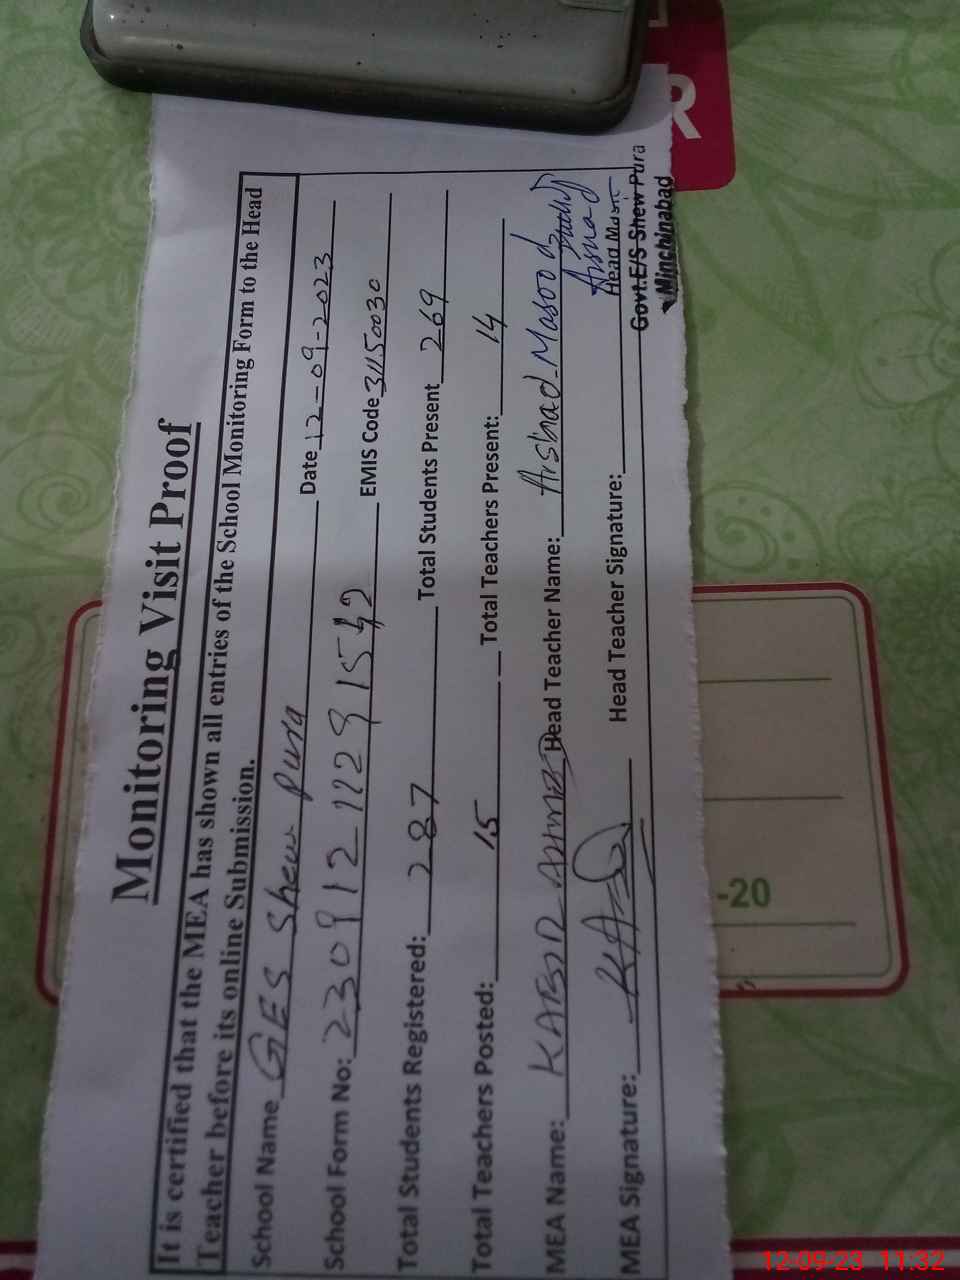 Monitoring Visit Proof
It is certified that the MEA has shown all entries of the School Monitoring Form to the Head
Teacher before its online Submission.
School Name GES Shew Pura Date 12-09-2023
School Form No: 230912112291542 EMIS Code 31150030
Total Students Registered: 287 Total Students Present 269
Total Teachers Posted: 15 Total Teachers Present: 14
MEA Name: KABIR AHMED Head Teacher Name: Arshad Masood
MEA Signature: Head Teacher Signature: Arshad
Head Master
Govt.E/S Shew Pura
Minchinabad
R
-20
12-09-23 11:32